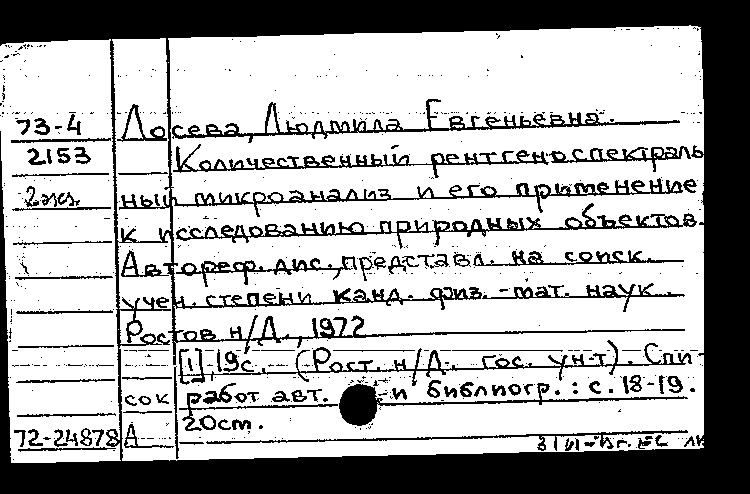 73-4 Лосева, Людмила Евгеньевна.
2153 Количественный рентгеноспектраль
2 экз. ный микроанализ и его применение
к исследованию природных объектов.
Автореф. дис., представл. на соиск.
учен. степени канд. физ.-мат. наук.
Ростов н/Д., 1972
[1], 19с. (Рост. н/Д. гос. ун-т). Спи-
сок работ авт. и библиогр.: с. 18-19.
20см.
72-24878 А